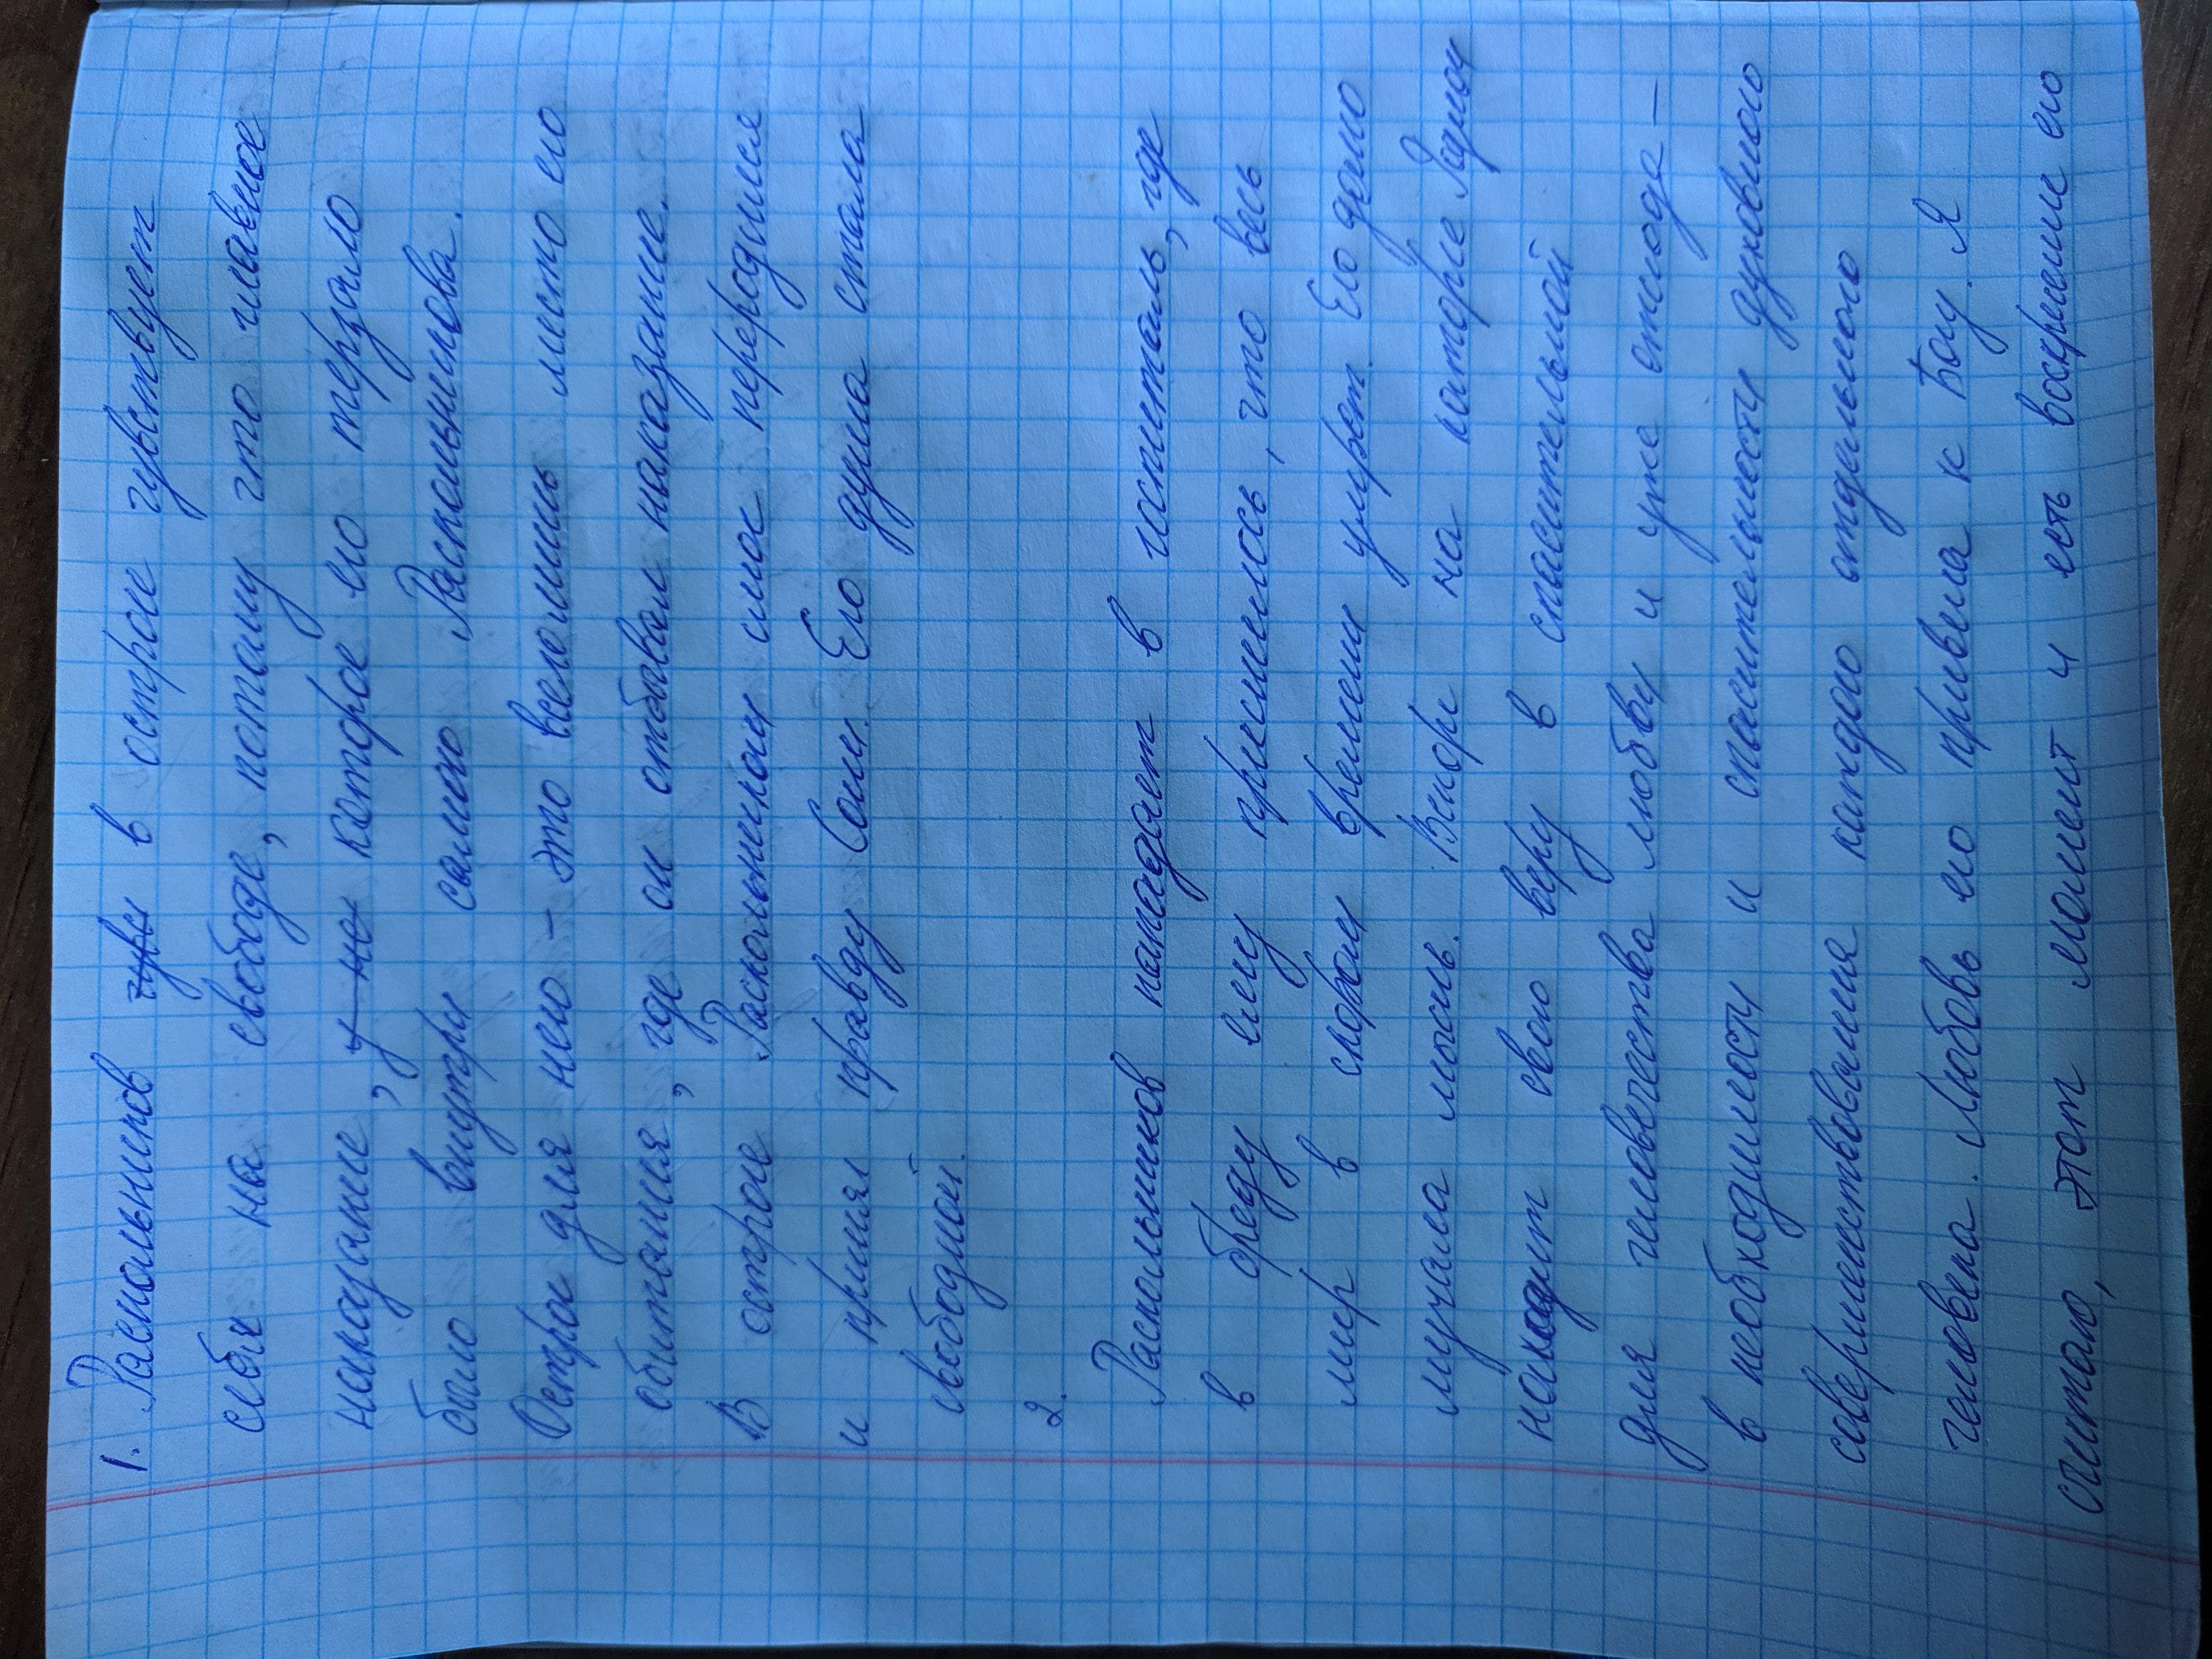 1. Раскольников чувс в остроге чувствует
себя на свободе, потому что главное
наказание, у не которое его терзало
было внутри самого Раскольникова.
Острог для него – это всего лишь место его
обитания, где он отбывал наказание.
В остроге Раскольников смог переродился
и принял правду Сони. Его душа стала
свободной.
2.
Раскольников попадает в госпиталь, где
в бреду ему приснилось, что весь
мир в скором времени умрет. Его долго
мучала мысль. Вскоре на каторге Родион
находит свою веру в спасительной
для человечества любви и уже отсюда –
в необходимости и спасительности духовного
совершенствования каждого отдельного
человека. Любовь его привела к Богу. Я
считаю, этот момент и есть воскрешение его